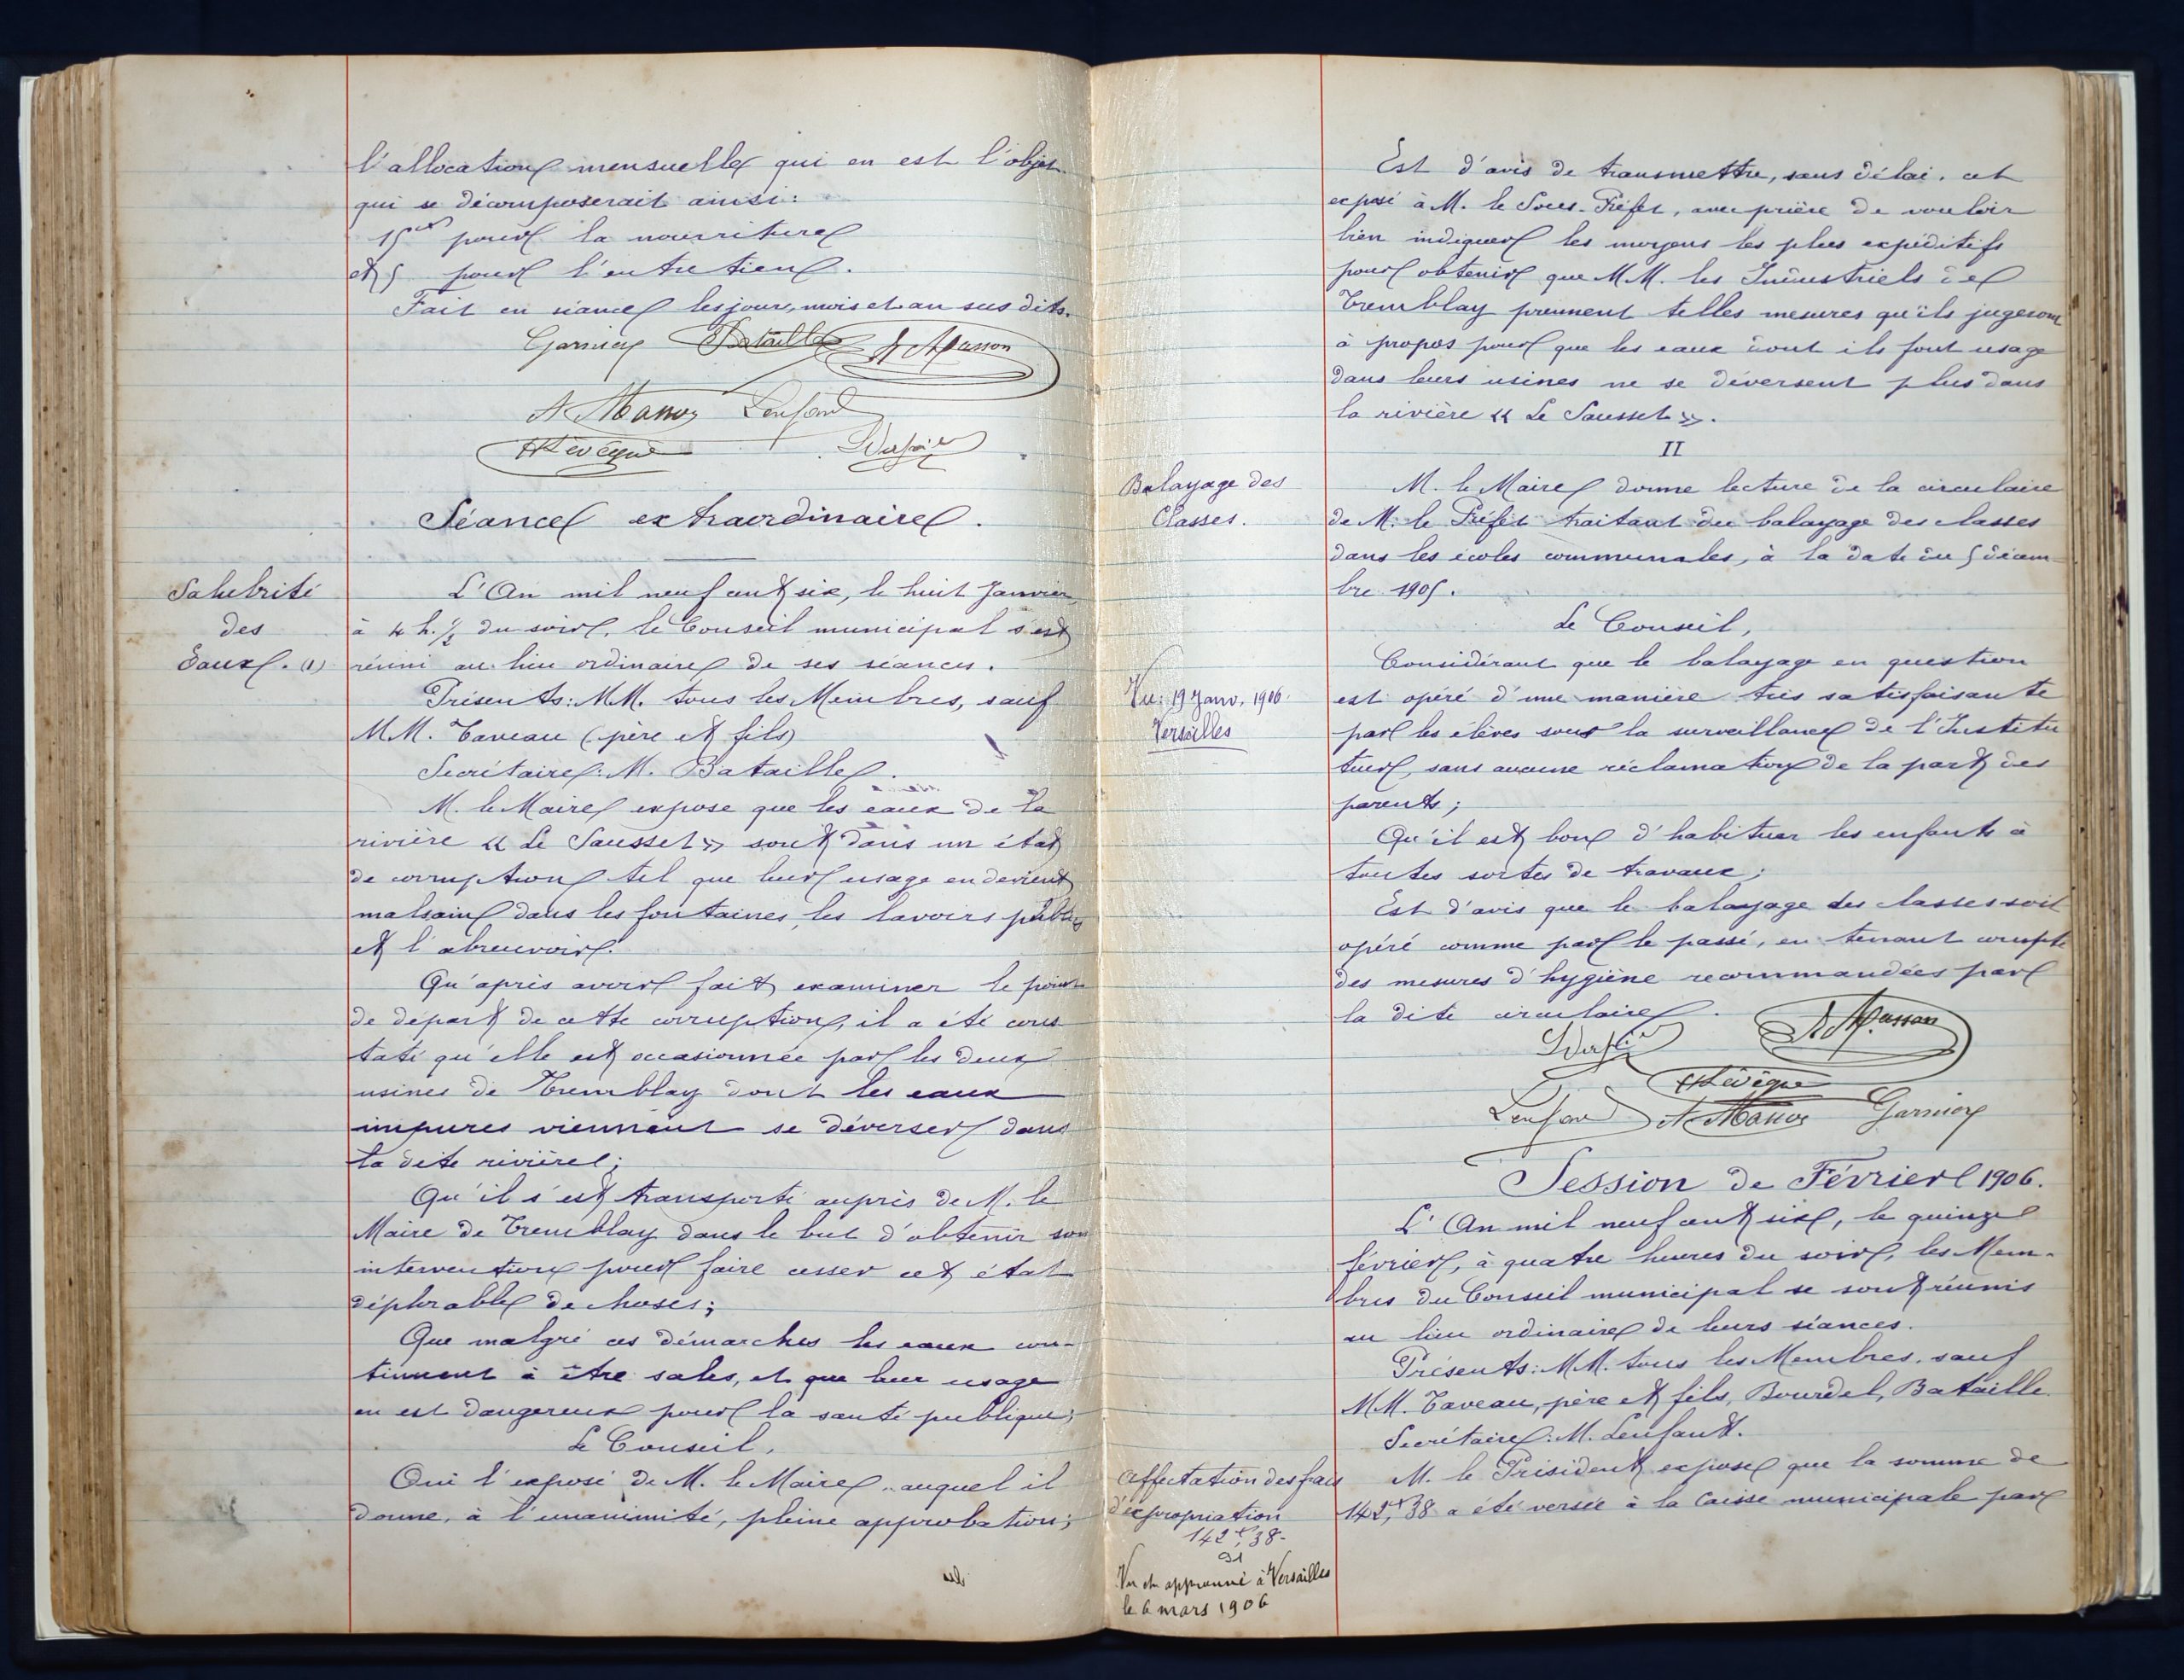 l'allocation mensuelle qui en est l'objet
qui se décomposerait ainsi:
15 fr pour la nourriture
et 5 pour l'entretien.
Fait en séance les jour, mois et an sus dits.
Garnier Bataille A Masson
A Manoz Lenfant
H Lévêque Dufour
Séance extraordinaire.
Salubrité
des
Eaux. (1)
L'An mil neuf cent six, le huit Janvier,
à 4 h. 1/2 du soir, le Conseil municipal s'est
réuni au lieu ordinaire de ses séances.
Présents: MM. tous les Membres, sauf
MM. Taveau (père et fils)
Secrétaire: M. Bataille.
M. le Maire expose que les eaux de la
rivière « Le Sausset » sont dans un état
de corruption tel que leur usage en devient
malsain dans les fontaines, les lavoirs publics
et l'abreuvoir.
Qu'après avoir fait examiner le point
de départ de cette corruption, il a été cons
taté qu'elle est occasionnée par les deux
usines de Tremblay dont les eaux
impures viennent se déverser dans
la dite rivière;
Qu'il s'est transporté auprès de M. le
Maire de Tremblay dans le but d'obtenir son
intervention pour faire cesser cet état
déplorable de choses;
Que malgré ces démarches les eaux con-
tinuent à être sales, et que leur usage
en est dangereux pour la santé publique;
Le Conseil,
Ouï l'exposé de M. le Maire, auquel il
donne, à l'unanimité, pleine approbation;
Est d'avis de transmettre, sans délai, cet
exposé à M. le Sous-Préfet, avec prière de vouloir
bien indiquer les moyens les plus expéditifs
pour obtenir que MM. les Industriels de
Tremblay prennent telles mesures qu'ils jugeront
à propos pour que les eaux dont ils font usage
dans leurs usines ne se déversent plus dans
la rivière « Le Sausset ».
II
Balayage des
Classes.
M. le Maire donne lecture de la circulaire
de M. le Préfet traitant du balayage des classes
dans les écoles communales, à la date du 5 décem-
bre 1905.
Le Conseil,
Considérant que le balayage en question
Vu: 19 Janv. 1906.
Versailles
est opéré d'une manière très satisfaisante
par les élèves sous la surveillance de l'Institu
teur, sans aucune réclamation de la part des
parents;
Qu'il est bon d'habituer les enfants à
toutes sortes de travaux;
Est d'avis que le balayage des classes soit
opéré comme par le passé, en tenant compte
des mesures d'hygiène recommandées par
la dite circulaire.
Dufour A Masson
H Lévêque
Lenfant A Manoz Garnier
Session de Février 1906.
L'An mil neuf cent six, le quinze
février, à quatre heures du soir, les Mem-
bres du Conseil municipal se sont réunis
au lieu ordinaire de leurs séances.
Présents: MM. tous les Membres, sauf
MM. Taveau, père et fils, Bourdel, Bataille
Secrétaire: M. Lenfant.
Affectation des frais
d'expropriation
142 f, 38-
Vu et approuvé à Versailles
le 6 mars 1906
M. le Président expose que la somme de
142, f 38 a été versée à la Caisse municipale par